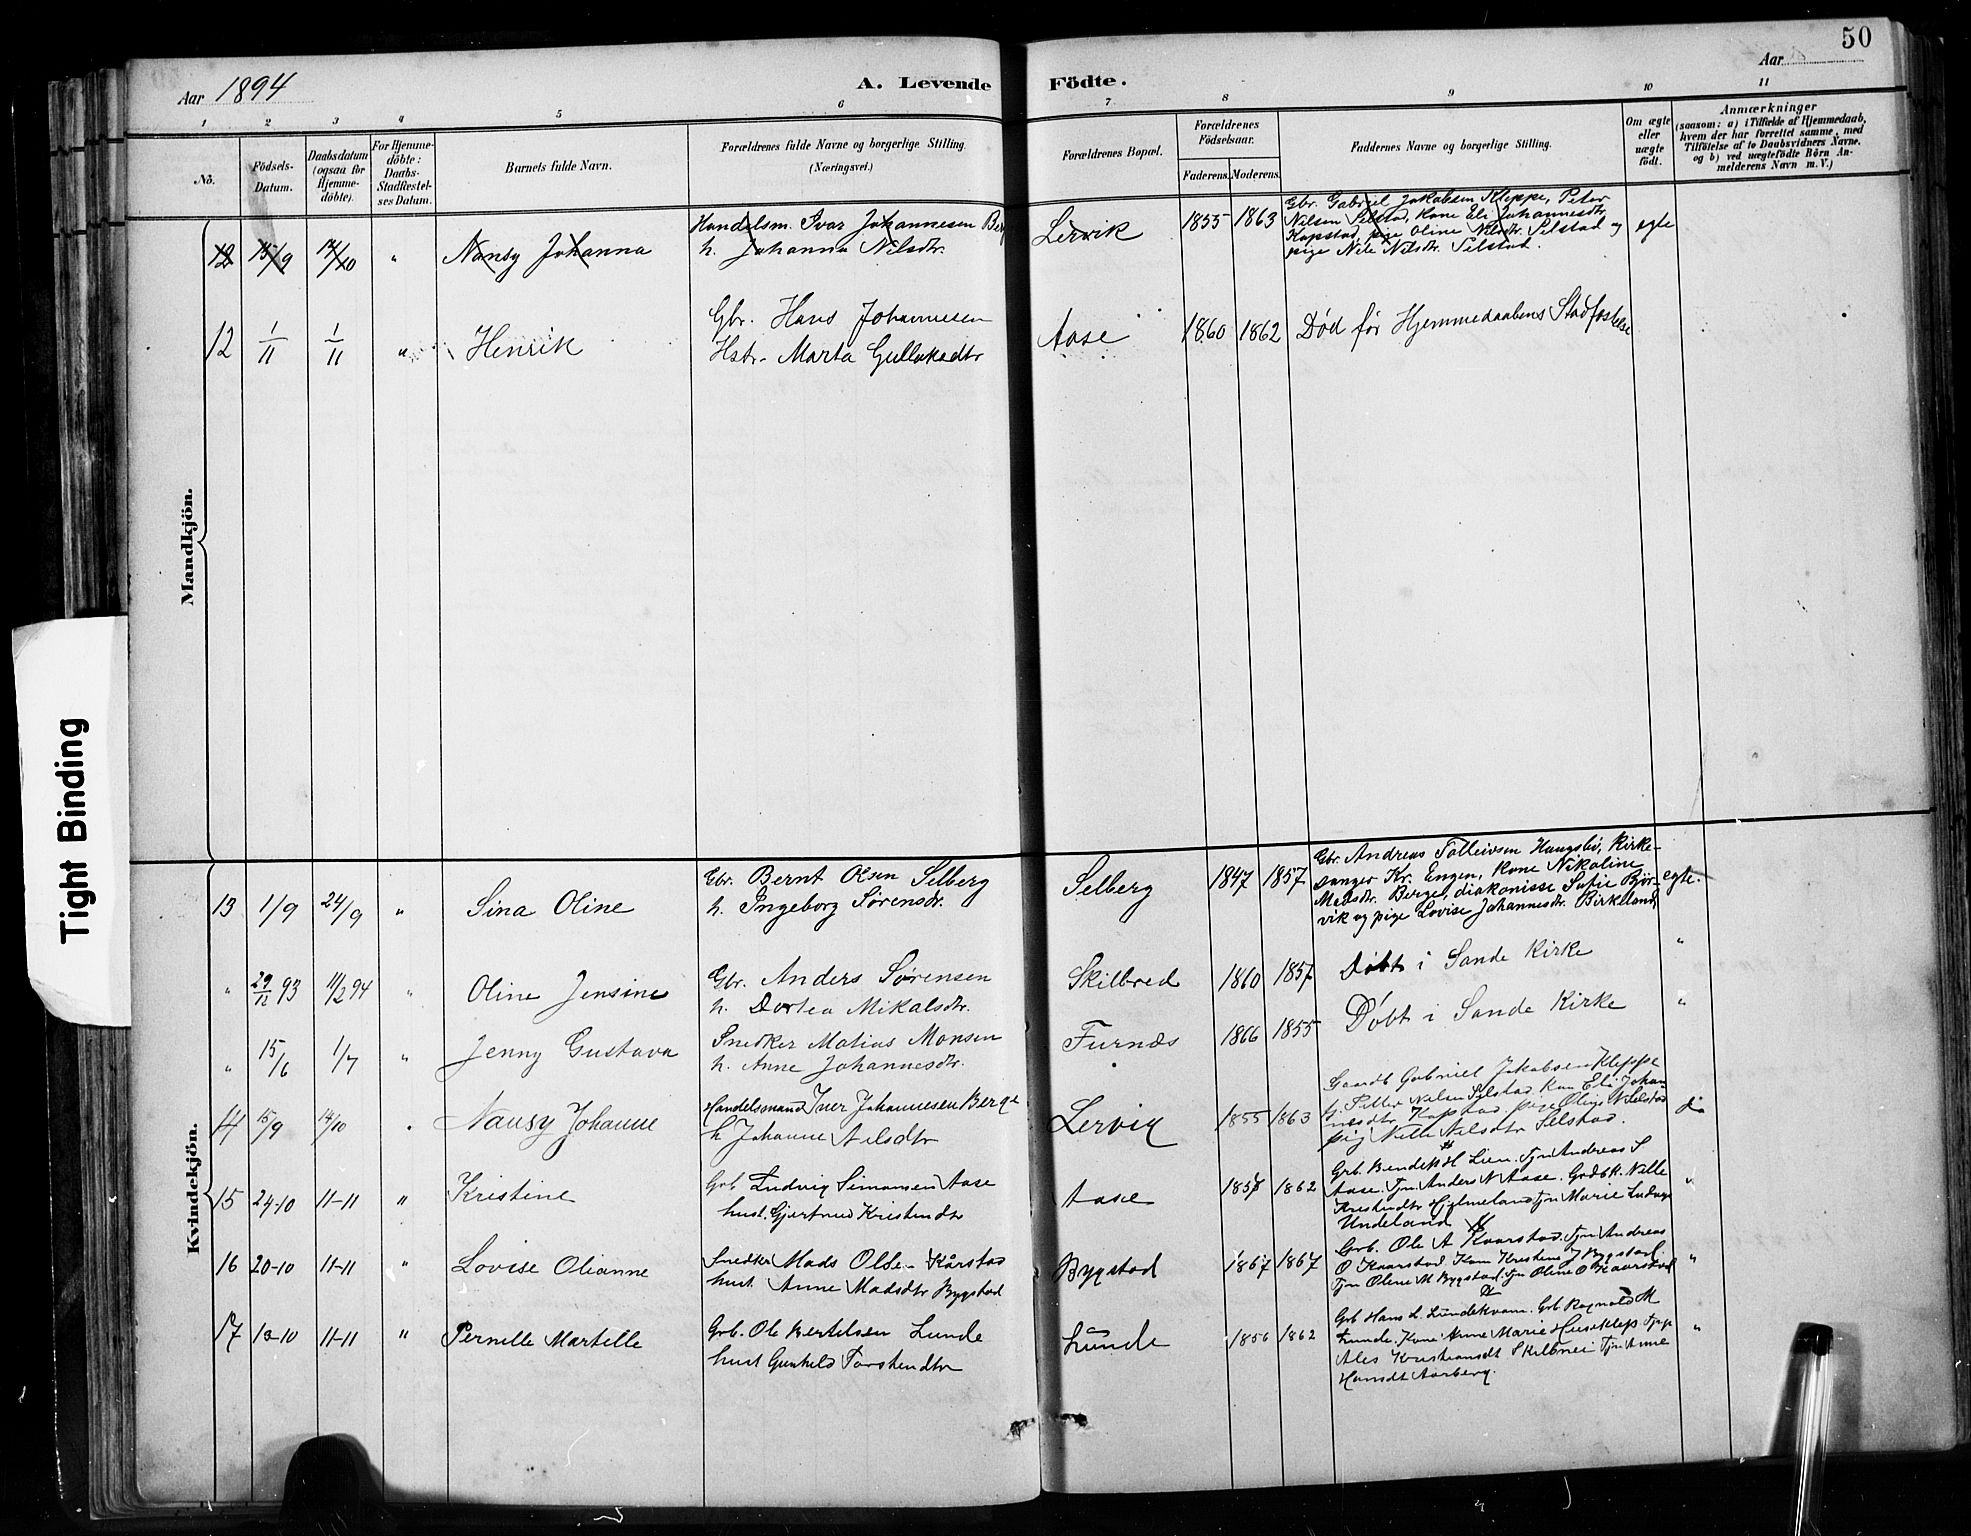 50
Aar 1894
A. Levende Födte.
Aar
1 2 3 4 5 6 7 8 9 10 11
No.
Födsels-
Datum.
Daabsdatum
(ogsaa for
Hjemme-
döbte).
For Hjemme-
döbte:
Daabs-
Stadfæstel-
ses Datum.
Barnets fulde Navn.
Forældrenes fulde Navne og borgerlige Stilling.
(Næringsvei.)
Forældrenes Bopæl.
Forældrenes
Födselsaar.
Faderens. Moderens.
Faddernes Navne og borgerlige Stilling.
Om ægte
eller
uægte
født.
Anmærkninger
(saasom: a) i Tilfælde af Hjemmedaab,
hvem der har forrettet samme, med
Tilföielse af to Daabsvidners Navne.
og b) ved uægtefödte Börn An-
melderens Navn m. V.)
Mandkjön.
12 15/9 14/10 " Nansy Johanna
Handelsm. Ivar Johannesen Berg
h. Johanna Nilsdtr.
Lervik 1855 1863
Gbr. Gabriel Jakobsen Kleppe, Peter
Nilsen Selstad, kone Eli Johannesdtr.
Kapstad, pige Oline Nilsdtr. Selstad og
pige Nele Nilsdtr. Selstad.
egte
12 1/11 1/11 " Henrik
Gbr. Hans Johannesen
Hstr. Marta Gullaksdtr
Aase 1860 1862 Død før Hjemmedaabens Stadfæstelse
Kvindekjön.
13 1/9 24/9 " Sina Oline
Gbr. Bernt Olsen Selberg
h. Ingeborg Sørensdr.
Selberg 1847 1857
Gbr. Andreas Tolleivsen Haugsbø, Kirke-
sanger Kr. Engen, kone Nikoline
Madsdtr. Berge, diakonisse Sofie Bjør-
vik og pige Lovise Johannesdtr. Birkeland,
egte.
" 29/12 93 11/2 94 " Oline Jensine
Gbr. Anders Sørensen
h. Dortea Mikalsdtr.
Skilbred 1860 1857 Døbt i Sande Kirke "
" 15/6 1/7 " Jenny Gustava
Snedker Matias Monsen
h. Anne Johannesdtr.
Furnæs 1866 1855 Døbt i Sande Kirke "
14 15/9 14/10 " Nansy Johanne
Handelsmand Iver Johannesen Berge
h Johanne Nilsdtr
Lervig 1855 1863
Gaardb Gabriel Jakobsen Kleppe
G. Petter Nilsen Selstad. kon Eli Johan
nesdtr Kapstad. pige Oline N Selstad
pig Nille Nilsdtr Selstad.
do
15 24-10 11-11 " Kristine
Grb Ludvig Simonsen Aase
hust. Gjertrud Kristendtr
Aase 1857 1862
Grb. Bendik H Lien. Tjn Andreas S
Aase. Tjn Anders N Aase. Grdbk. Nille
Kristendtr Hjelmeland Tjn Marie Ludvigs
Undeland
"
16 20-10 11-11 " Lovise Olianne
Snedker Mads Olse- Kårstad
hust. Anne Madsdtr Bygstad
Bygstad 1867 1867
Grb. Ole A Kaarstad. Tjn Andreas
O Kaarstad Kon Kristens J Bygstad
Tjn Oline M Bygstad. Tjn Oline O Kaarstad
"
17 13-10 11-11 " Pernille Martille
Grb. Ole Bertelsen Lunde
hust Gunhild Torstendtr
Lunde 1856 1862
Grb Hans L Lundekvam. Grb Ragnald M
Lunde. Kone Anne Marie Huseklep Tjpg
Ales Kristiansdt Skilbrei Tjn Anne
Hansdt Aarberg.
"
Tight Binding